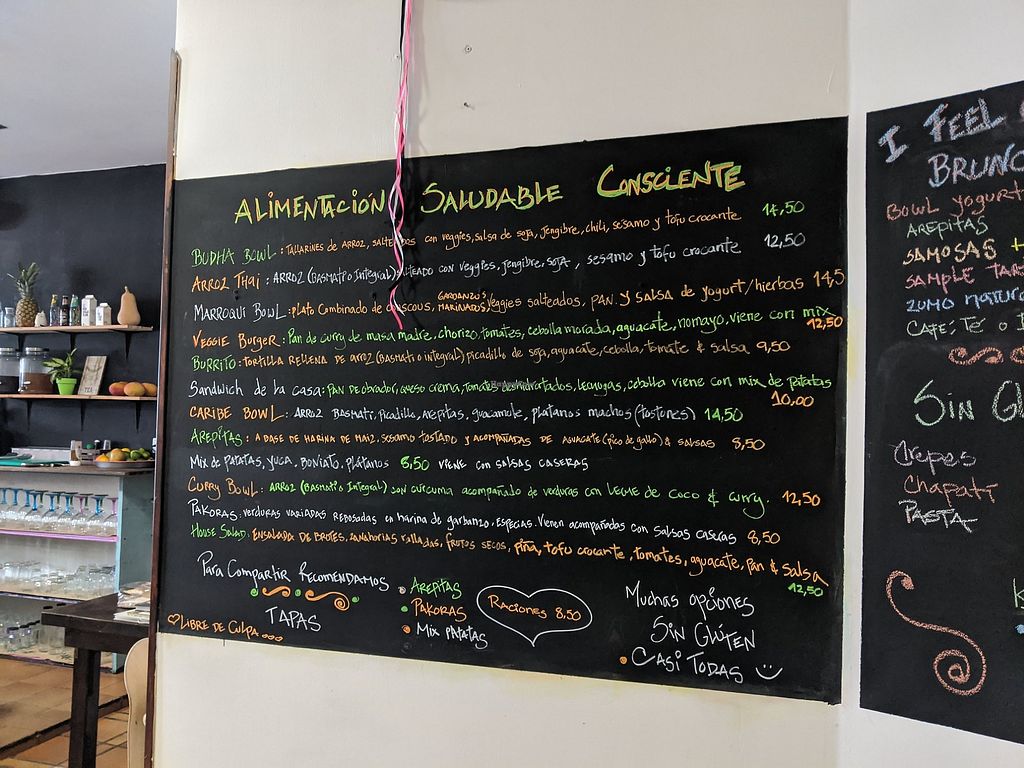 ALIMENTACIÓN SALUDABLE CONSCIENTE
BUDHA BOWL: TALLARINES DE ARROZ, con veggies, salsa de soja, jengibre, chili, sésamo y tofu crocante 14,50
ARROZ THAI: ARROZ (BASMATI O INTEGRAL) SALTEADO CON VEGGIES, jengibre, SOJA, sesamo y tofu crocante 12,50
MARROQUI BOWL: plato Combinado de GARBANZOS MARINADOS, veggies salteados, PAN y SALSA de yogurt/hierbas 14,5
VEGGIE BURGER: Pan de curry de masa madre, chorizo, tomates, cebolla morada, aguacate, nomayo, viene con mix 12,50
BURRITO: TORTILLA RELLENA DE arroz (BASMATI o integral) picadillo de soja, aguacate, cebolla, tomate & salsa 9,50
Sandwich de la casa: PAN DE obrador, queso crema, tomates deshidratados, lechugas, cebolla viene con mix de patatas
10,00
CARIBE BOWL: ARROZ BASMATI, picadillo, arepitas, guacamole, platanos machos (tostones) 14,50
AREPITAS: A BASE DE HARINA DE MAIZ, SESAMO TOSTADO Y ACOMPAÑADAS DE AGUACATE (pico de gallo) & SALSAS 8,50
Mix de PATATAS, YUCA, BONIATO, PLATANOS 8,50 VIENE CON SALSAS CASERAS
CURRY BOWL: ARROZ (BASMATI o Integral) CON CURCUMA acompañado de verduras con LECHE de COCO & curry. 12,50
PAKORAS: VERDURAS VARIADAS REBOSADAS EN HARINA de garbanzo, ESPECIAS. Vienen acompañadas con Salsas caseras 8,50
HOUSE SALAD: ENSALADA DE BROTES, ZANAHORIAS ralladas, frutos secos, piña, tofu crocante, tomates, aguacate, Pan & Salsa
12,50
Para Compartir Recomendamos
TAPAS
LIBRE DE CULPA ...
AREPITAS
PAKORAS
MIX PATATAS
RACIONES 8,50
Muchas opciones
SIN GLUTEN
CASI TODAS
I FEEL
BRUNC
BOWL yogurt
AREPITAS
SAMOSAS +
SAMPLE TAR
ZUMO natura
CAFÉ, TÉ O
SIN GL
Crepes
Chapati
PASTA